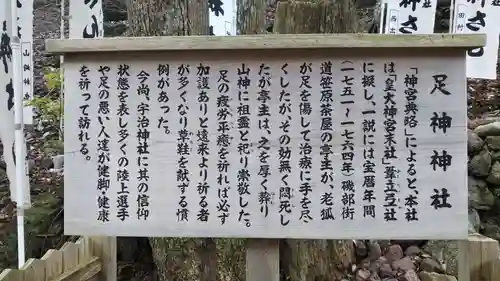 足神神社
「神宮典略」によると、本社
は「皇大神宮末社」葦立弖社
に擬し、一説には宝暦年間
(一七五一〜一七六四年)磯部街
道笹原茶屋の亭主が、老狐
が足を傷して治療に手を尽
くしたが、その効無く悶死し
たが亭主は、之を厚く葬り
山神に祖霊と祠り崇敬した。
足の疲労平癒を祈れば必ず
加護ありと遠来より祈る者
が多くなり草鞋を献ずる慣
例があった。
今尚、宇治神社に其の信仰
状態を表し多くの陸上選手
や足の悪い人達が健脚・健康
を祈って訪れる。